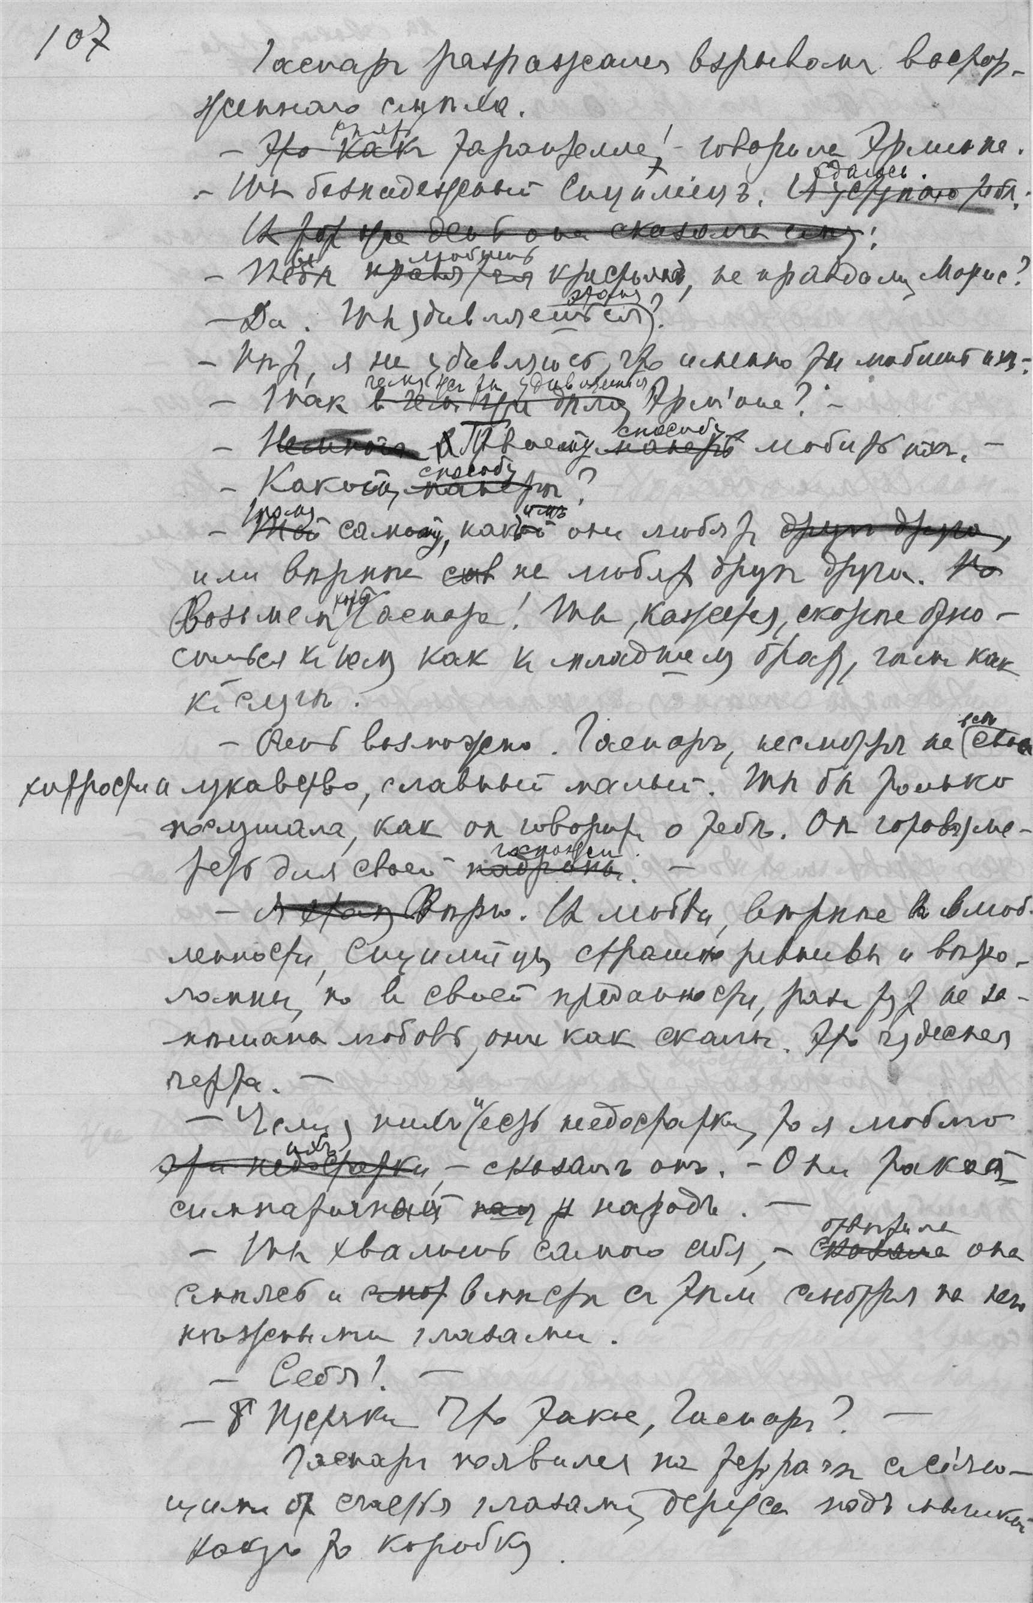 107
Гаспаръ разражался взрывомъ востор-
женнаго смѣха.
- Это какъ тарантелла! - говорила Эрміона.
- Ты безнадежный Сициліецъ. Я сдаюсь.
И тот же день она сказала ему:
- Ты любишь крестьянъ, не правда ли, Морис?
- Да. Ты удивляешься?
- Нѣтъ, я не удивляюсь, что именно ты любишь ихъ.
- Такъ чему же ты удивляешься, Эрміона? -
- Твоему способу любить ихъ. -
- Какому способу?
- Тому самому, какимъ они любятъ другъ друга,
или вѣрнѣе не любятъ другъ друга.
Возьмемъ хоть Гаспара! Ты, кажется, скорѣе отно-
сишься къ нему какъ къ младшему брату, чѣмъ какъ
къ слугѣ.
- Очень возможно. Гаспаръ, несмотря на всѣ свои
хитрости и лукавство, славный малый. Ты бы только
послушала, какъ он говоритъ о тебѣ. Он готовъ уме-
реть для своей госпожи. -
- Вѣрю. Въ любви, вѣрнѣе въ влюб-
ленности, Сицилійцы страшно ревнивы и вѣро-
ломны, но въ своей преданности, разъ тутъ не за-
мѣшана любовь, они какъ скалы. Это чудесная
черта. -
- Если у нихъ и есть недостатки, то я люблю
ихъ, - сказалъ онъ. - Они такой
симпатичный народъ. -
- Ты хвалишь самого себя, - отвѣтила она
смѣясь и вмѣстѣ съ тѣмъ смотря на него
нѣжными глазами.
- Себя! -
- Что такое, Гаспаръ? -
Гаспаръ появился на террасѣ съ сіяю-
щими от счастья глазами, держа подъ мышкой
какую то коробку.